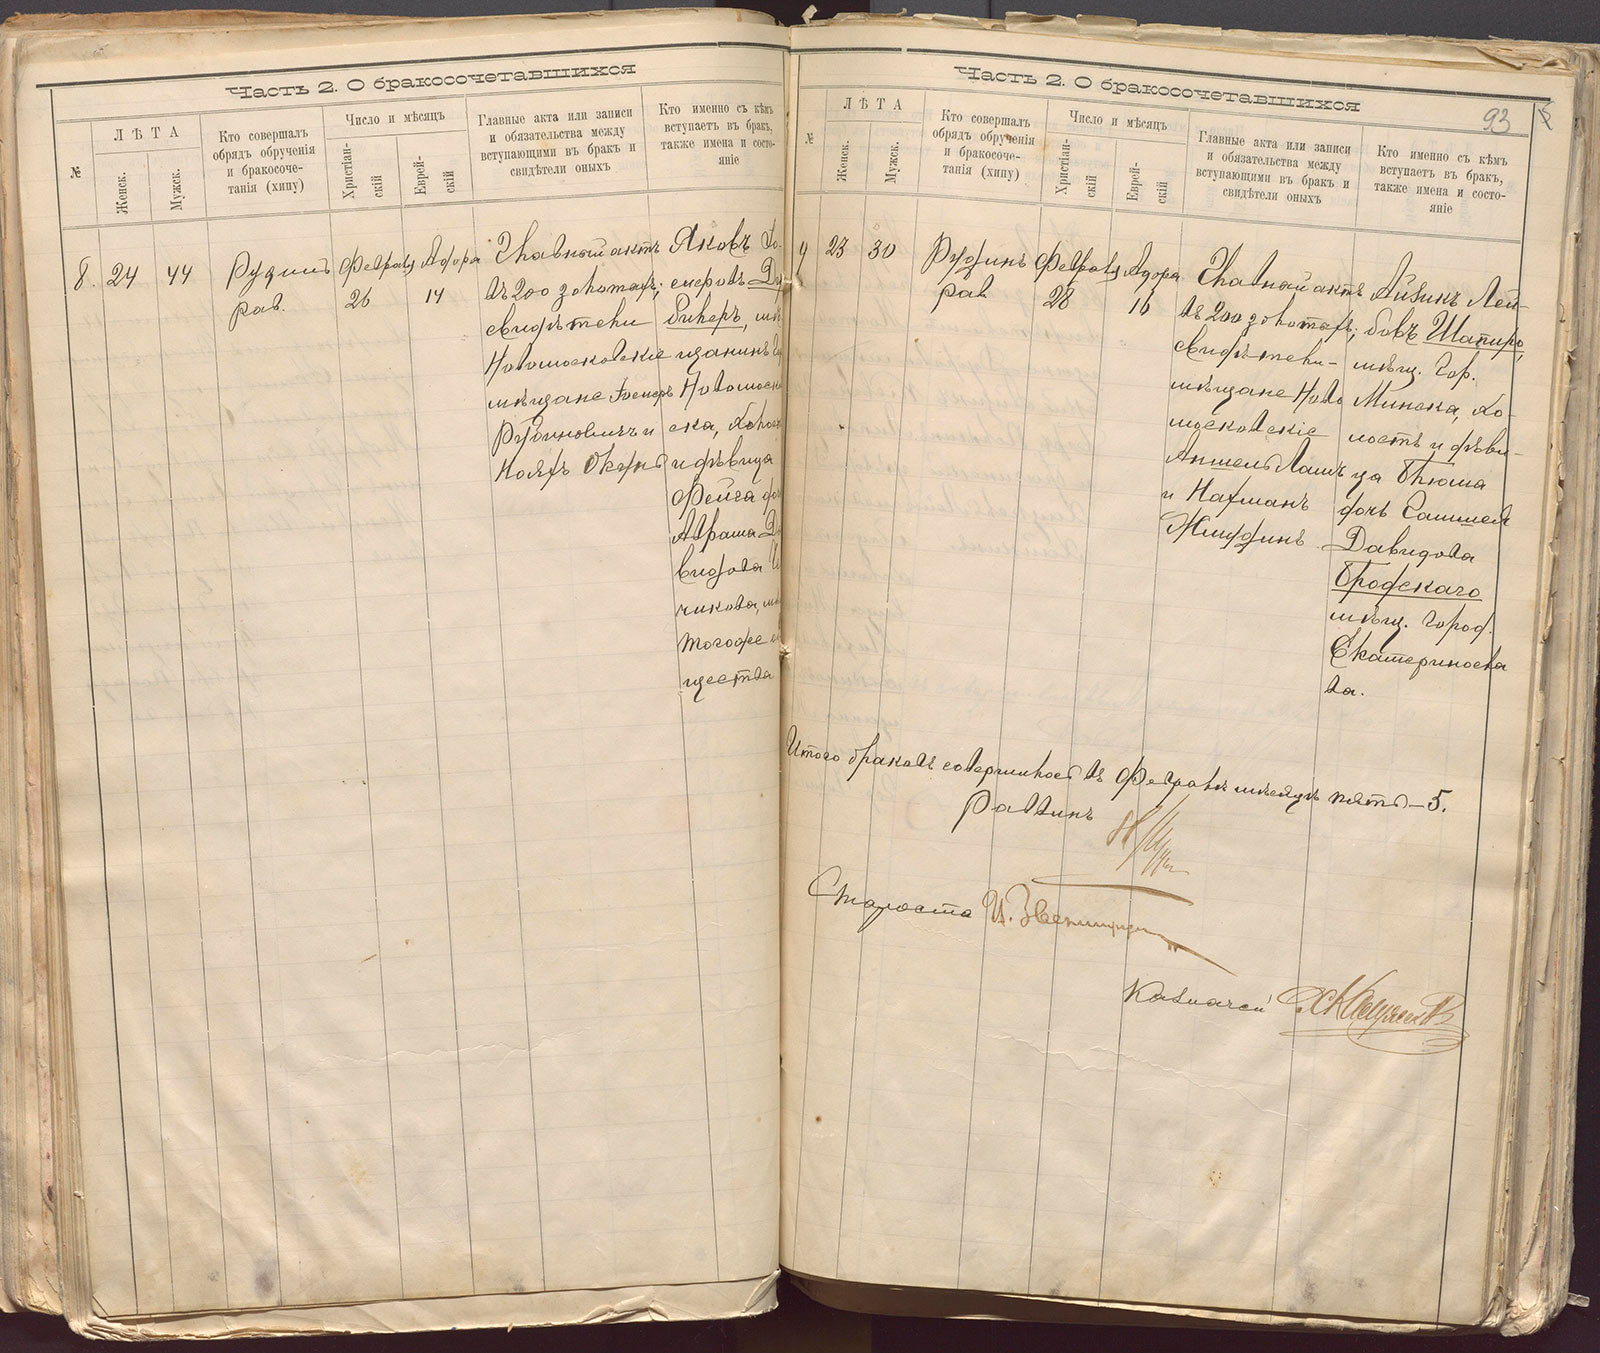 Часть 2. О бракосочетавшихся
№
ЛѢТА
Женск.
Мужск.
Кто совершалъ
обрядъ обрученія
и бракосоче-
танія (хипу)
Число и мѣсяцъ
Христіан-
скій
Еврей-
скій
Главные акта или записи
и обязательства между
вступающими въ бракъ и
свидѣтели оныхъ
Кто именно съ кѣмъ
вступаетъ въ бракъ,
также имена и состо-
яніе
8. 24 44
рав.
Февраля
26
Адора
14
Главный актъ
въ 200 золотыхъ;
свидѣтели
Новомосковскіе
мѣщане
Рубиновичъ и
Яковъ
мѣ
щанинъ
Новомоск
ска, Холост
и дѣвица
Фейга до
Абрама Да
видова
чикова, мѣ
тогоже о
щества
Часть 2. О бракосочетавшихся
93
№
ЛѢТА
Женск.
Мужск.
Кто совершалъ
обрядъ обрученія
и бракосоче-
танія (хипу)
Число и мѣсяцъ
Христіан-
скій
Еврей-
скій
Главные акта или записи
и обязательства между
вступающими въ бракъ и
свидѣтели оныхъ
Кто именно съ кѣмъ
вступаетъ въ бракъ,
также имена и состо-
яніе
9 23 30
Рудинъ
рав
Февраля
28
Адора
16
Главный актъ
въ 200 золотыхъ;
свидѣтели-
мѣщане Ново
московскіе
Аншель Лашъ
и Нахманъ
Айзикъ Лей-
бовъ Шапиро,
мѣщ. Гор.
Минска, хо-
лостъ и дѣви-
ца Блюма
дочь
Давидова
Бродскаго
мѣщ. город.
Екатериносла
ва.
Итого браковъ совершилось въ Февралѣ мѣсяцѣ пять – 5.
Раввинъ
Староста
Казначей